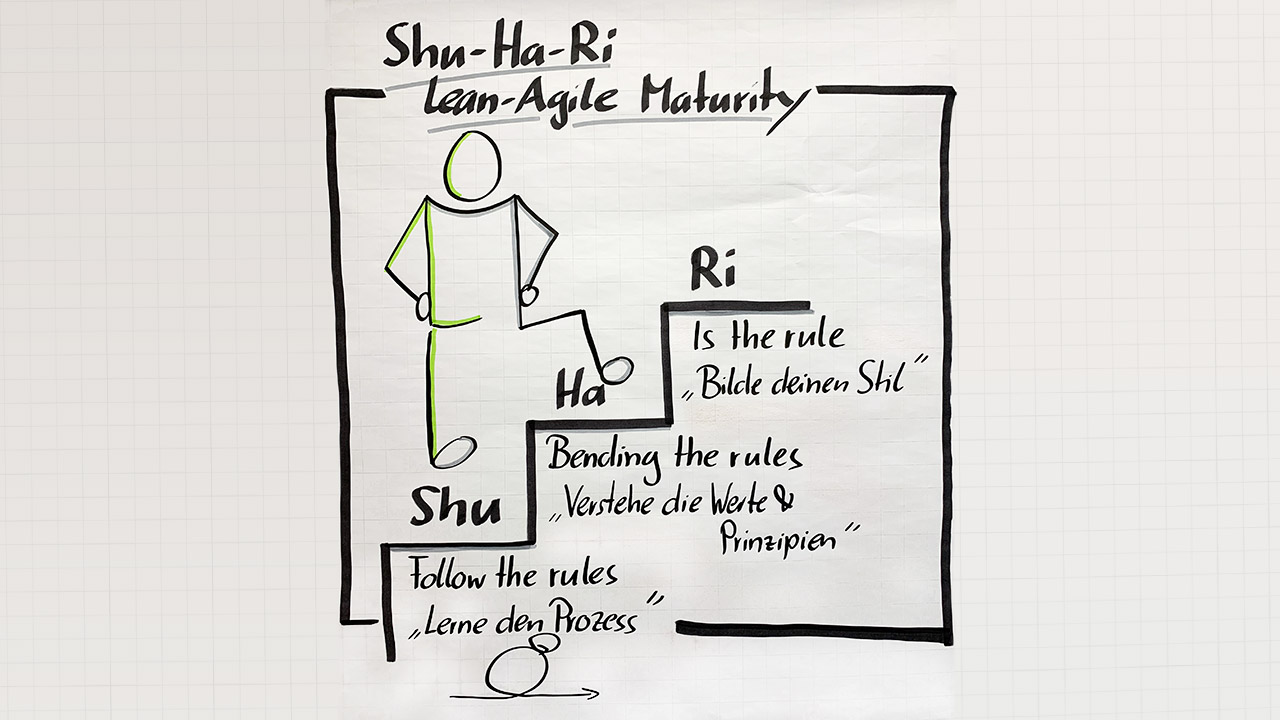 Shu-Ha-Ri
Lean-Agile Maturity
Ri
Is the rule
„Bilde deinen Stil”
Ha
Bending the rules
„Verstehe die Werte &
Prinzipien”
Shu
Follow the rules
„Lerne den Prozess”